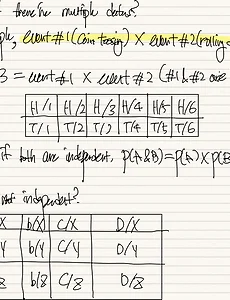 there're multiple datas?
ple, event#1(Coin tossing) × event#2(rolling
3 = event#1 × event#2 (#1&#2 are
H/1 H/2 H/3 H/4 H/5 H/6
T/1 T/2 T/3 T/4 T/5 T/6
if both are independent, P(A&B)=P(A)×P(B
not independent?
X b/X C/X D/X
Y b/Y C/Y D/Y
8 b/8 C/8 D/8